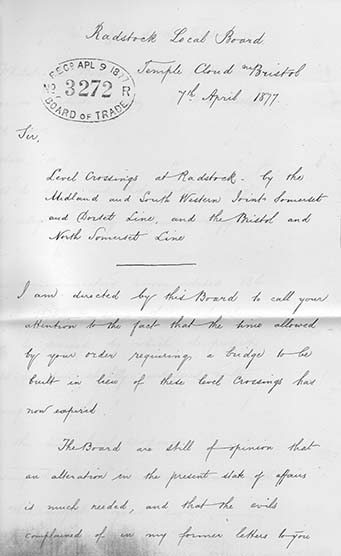 Radstock Local Board
REC'D APL 9 1877
No. 3272 R
BOARD OF TRADE
Temple Cloud nr Bristol
7th April 1877.
Sir,
Level Crossings at Radstock - by the
Midland and South Western Joint Somerset
and Dorset Line, and the Bristol and
North Somerset Line
I am directed by this Board to call your
attention to the fact that the time allowed
by your order requiring a bridge to be
built in lieu of these level Crossings has
now expired
The Board are still of opinion that
an alteration in the present state of affairs
is much needed, and that the evils
complained of in my former letters to you